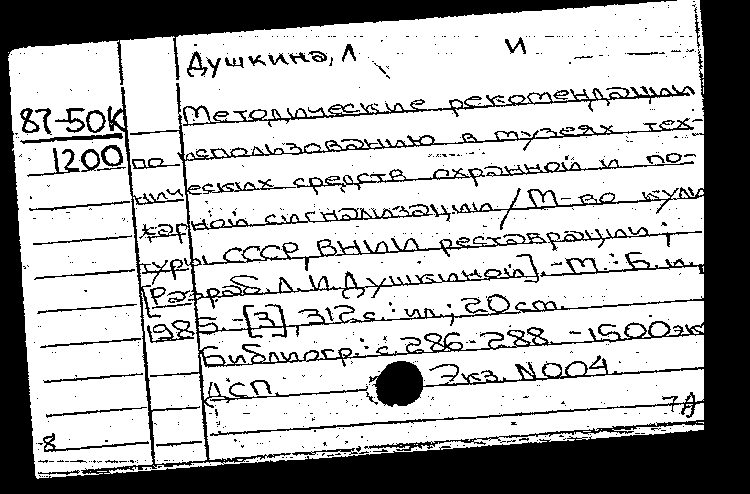 Душкина, Л И
87-50К
1200
Методические рекомендации
по использованию в музеях тех-
нических средств охранной и по-
жарной сигнализации / М-во куль
туры СССР, ВНИИ реставрации ;
[Разраб. Л. И. Душкиной]. - М. : Б. и.,
1985. - [3], 312 с. : ил. ; 20 см.
Библиогр.: с. 286-288. - 1500 эк
ДСП. Экз. N 004.
8 7А